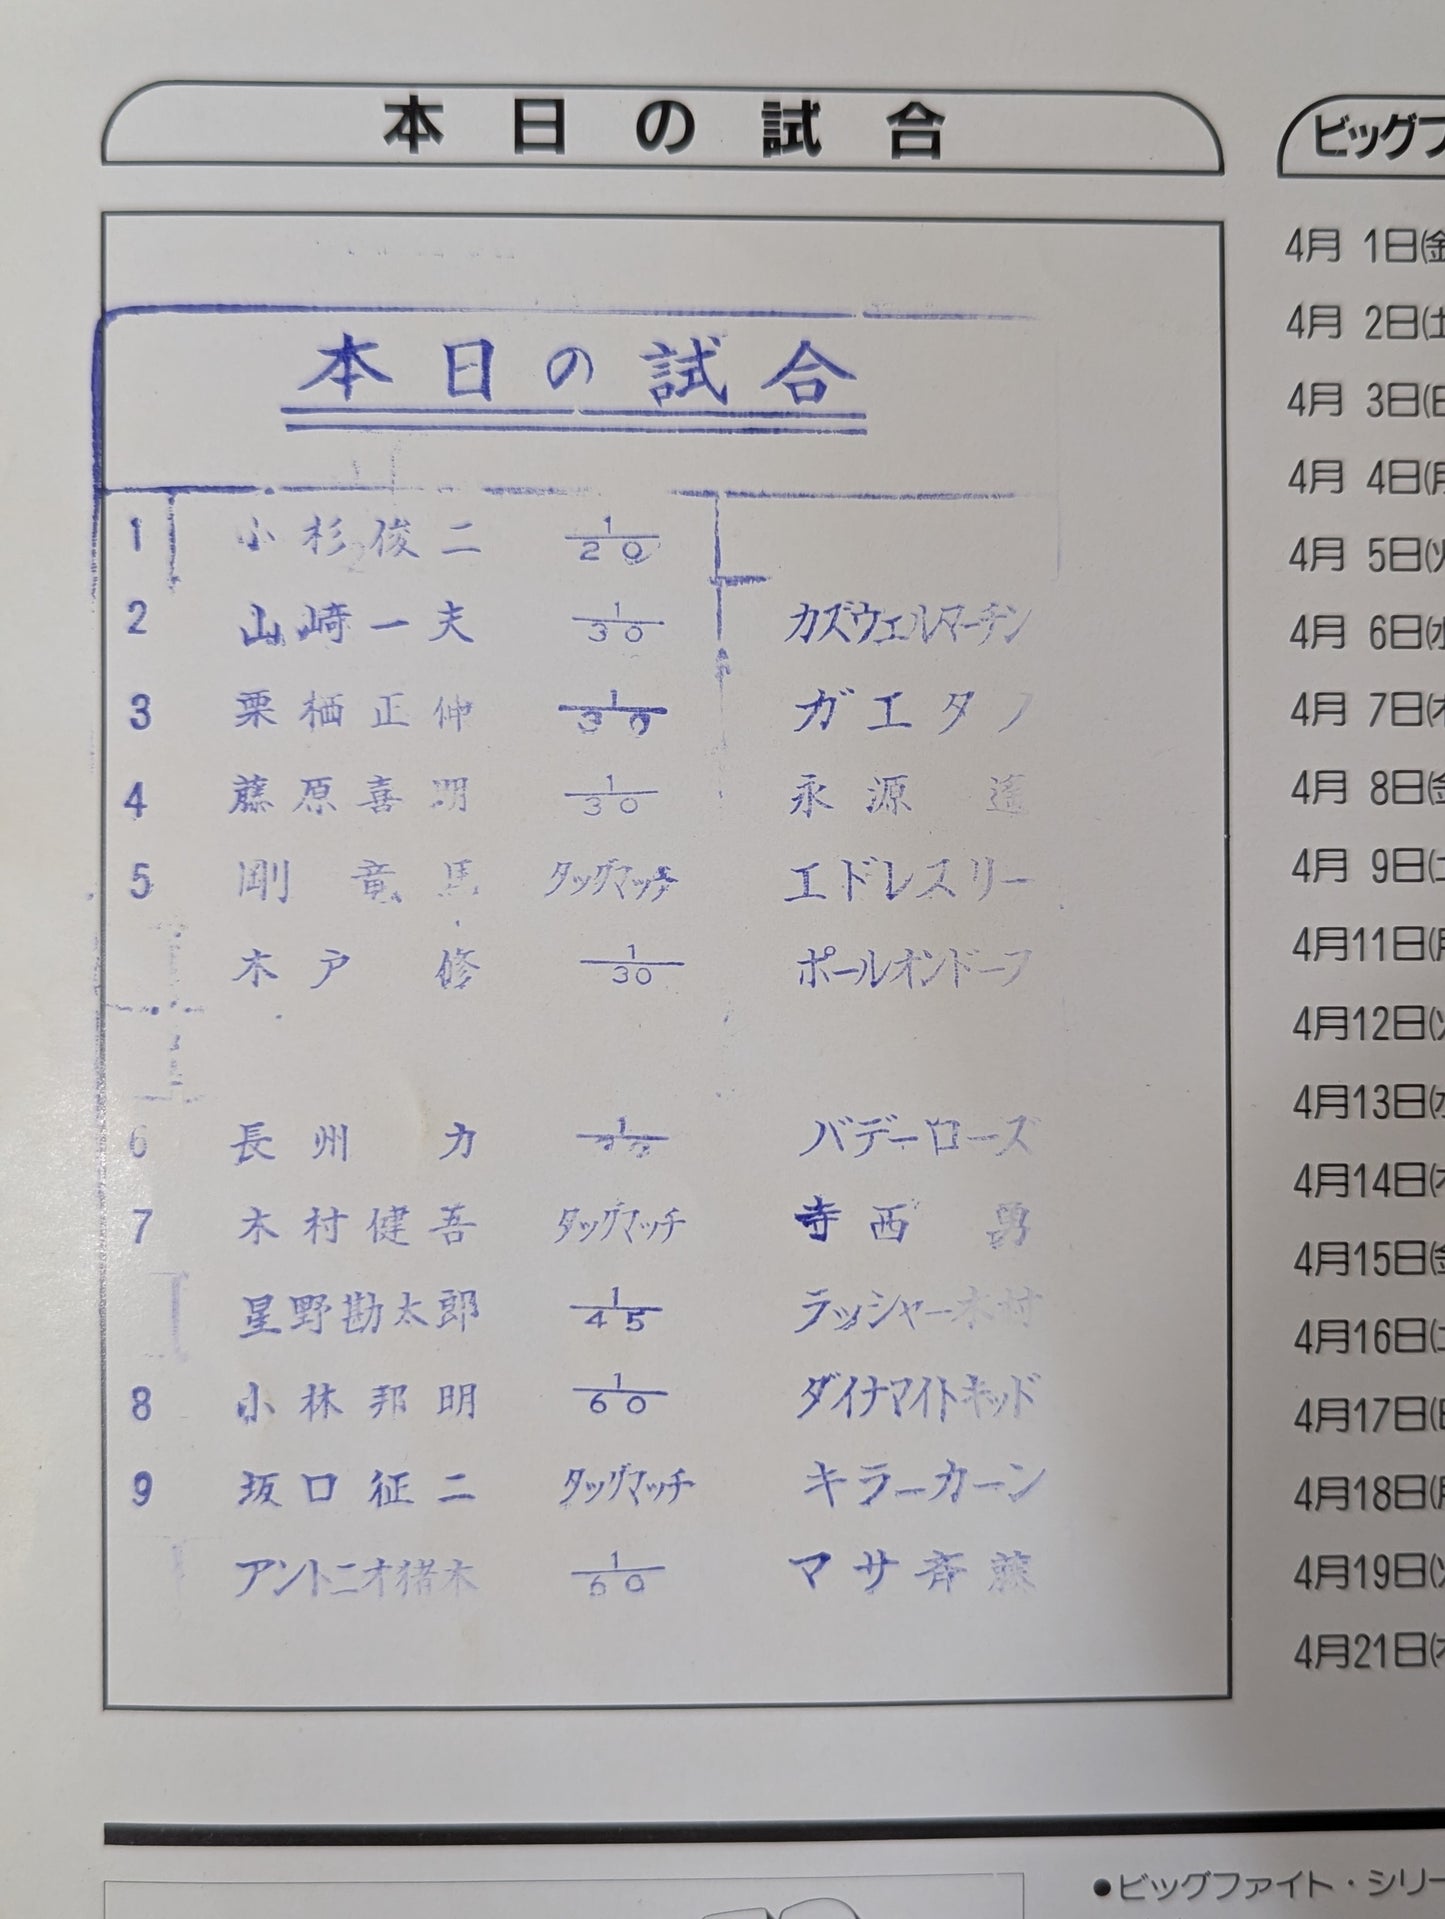 本日の試合
本日の試合
1 小杉俊二 1/20
2 山崎一夫 1/30 カズウェルマーチン
3 栗栖正伸 1/30 ガエタノ
4 藤原喜明 1/30 永源遥
5 剛竜馬 タッグマッチ エドレスリー
木戸修 1/30 ポールオンドーフ
6 長州力 バデーローズ
7 木村健吾 タッグマッチ 寺西勇
星野勘太郎 1/45 ラッシャー木村
8 小林邦明 1/60 ダイナマイトキッド
9 坂口征二 タッグマッチ キラーカーン
アントニオ猪木 1/60 マサ斉藤
ビッグフ
4月 1日(金
4月 2日(土
4月 3日(日
4月 4日(月
4月 5日(火
4月 6日(水
4月 7日(木
4月 8日(金
4月 9日(土
4月11日(月
4月12日(火
4月13日(水
4月14日(木
4月15日(金
4月16日(土
4月17日(日
4月18日(月
4月19日(火
4月21日(木
●ビッグファイト・シリー